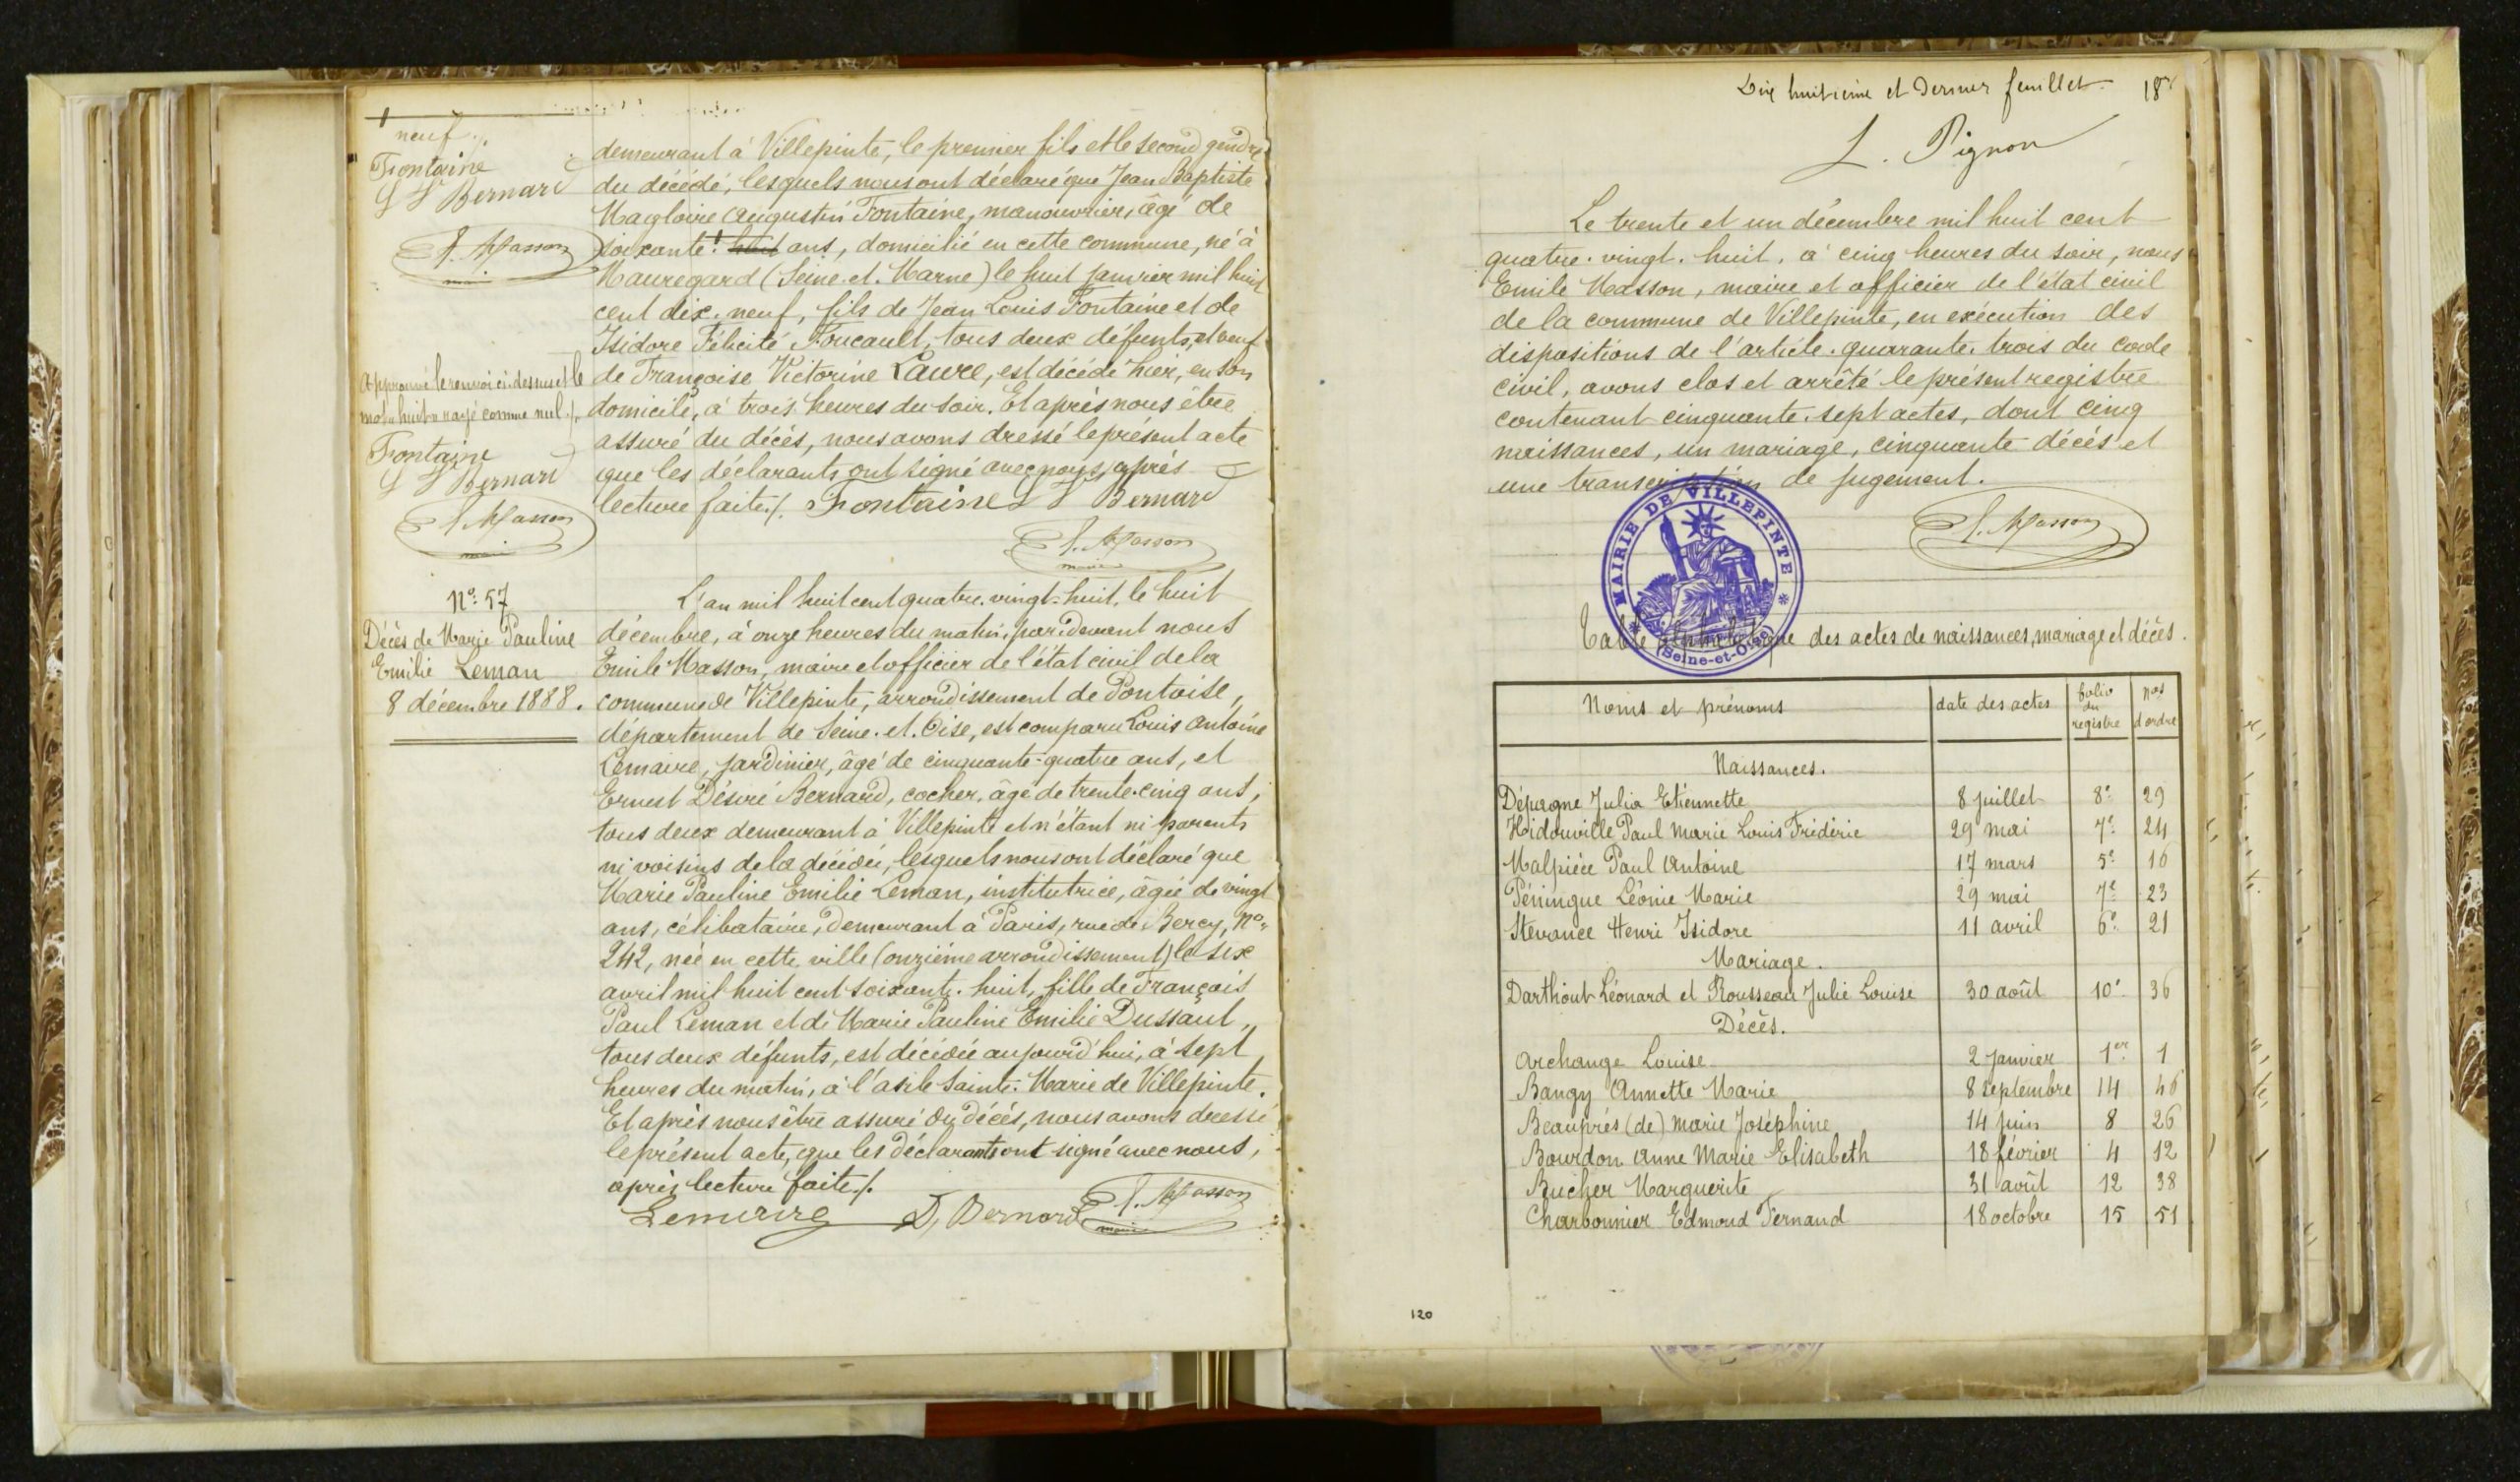 neuf ./.
Fontaine
L D Bernard
E. Masson
maire
demeurant à Villepinte, le premier fils et le second gendre
du décédé, lesquels nous ont déclaré que Jean Baptiste
Magloire Augustin Fontaine, manouvrier, âgé de
soixante ! huit ans, domicilié en cette commune, né à
Mauregard (Seine-et-Marne) le huit janvier mil huit
cent dix-neuf, fils de Jean Louis Fontaine et de
Isidore Félicité Foucault, tous deux défunts, et veuf
de Françoise Victorine Laure, est décédé hier, en son
domicile, à trois heures du soir. Et après nous être
assuré du décès, nous avons dressé le présent acte
que les déclarants ont signé avec nous, après
lecture faite ./. Fontaine L D Bernard
E. Masson
maire
Approuvé le renvoi ci-dessus et le
mot "huit" rayé comme nul ./.
Fontaine
L D Bernard
E. Masson
maire
No: 57
Décès de Marie Pauline
Emilie Leman
8 décembre 1888.
L'an mil huit cent quatre-vingt-huit, le huit
décembre, à onze heures du matin, par devant nous
Emile Masson, maire et officier de l'état civil de la
commune de Villepinte, arrondissement de Pontoise,
département de Seine-et-Oise, est comparu Louis Antoine
Lemaire, jardinier, âgé de cinquante-quatre ans, et
Ernest Désiré Bernard, cocher, âgé de trente-cinq ans,
tous deux demeurant à Villepinte et n'étant ni parents
ni voisins de la décédée, lesquels nous ont déclaré que
Marie Pauline Emilie Leman, institutrice, âgée de vingt
ans, célibataire, demeurant à Paris, rue de Bercy, No
242, née en cette ville (onzième arrondissement) le six
avril mil huit cent soixante-huit, fille de François
Paul Leman et de Marie Pauline Emilie Dussaut,
tous deux défunts, est décédée aujourd'hui, à sept
heures du matin, à l'asile Sainte-Marie de Villepinte.
Et après nous être assuré du décès, nous avons dressé
le présent acte, que les déclarants ont signé avec nous,
après lecture faite ./.
Lemaire D, Bernard E. Masson
maire
Dix huitième et dernier feuillet 18e
L. Pignon
Le trente et un décembre mil huit cent
quatre-vingt-huit, à cinq heures du soir, nous
Emile Masson, maire et officier de l'état civil
de la commune de Villepinte, en exécution des
dispositions de l'article quarante-trois du code
civil, avons clos et arrêté le présent registre
contenant cinquante-sept actes, dont cinq
naissances, un mariage, cinquante décès et
une transcription de jugement.
E. Masson
MAIRIE DE VILLEPINTE
(Seine-et-Oise)
Table alphabétique des actes de naissances, mariage et décès.
Noms et prénoms | date des actes | folio du registre | nos d'ordre
Naissances.
Dépagne Julia Etiennette 8 juillet 8e 29
Hidouville Paul Marie Louis Frédéric 29 mai 7e 24
Malpièce Paul Antoine 17 mars 5e 16
Péningue Léonie Marie 29 mai 7e 23
Stevance Henri Isidore 11 avril 6e 21
Mariage.
Darthout Léonard et Rousseau Julie Louise 30 août 10e 36
Décès.
Archange Louise 2 janvier 1er 1
Bangy Annette Marie 8 septembre 14 46
Beauprés (de) Marie Joséphine 14 juin 8 26
Bourdon Anne Marie Elisabeth 18 février 4 12
Bucher Marguerite 31 août 12 38
Charbonnier Edmond Fernand 18 octobre 15 51
120